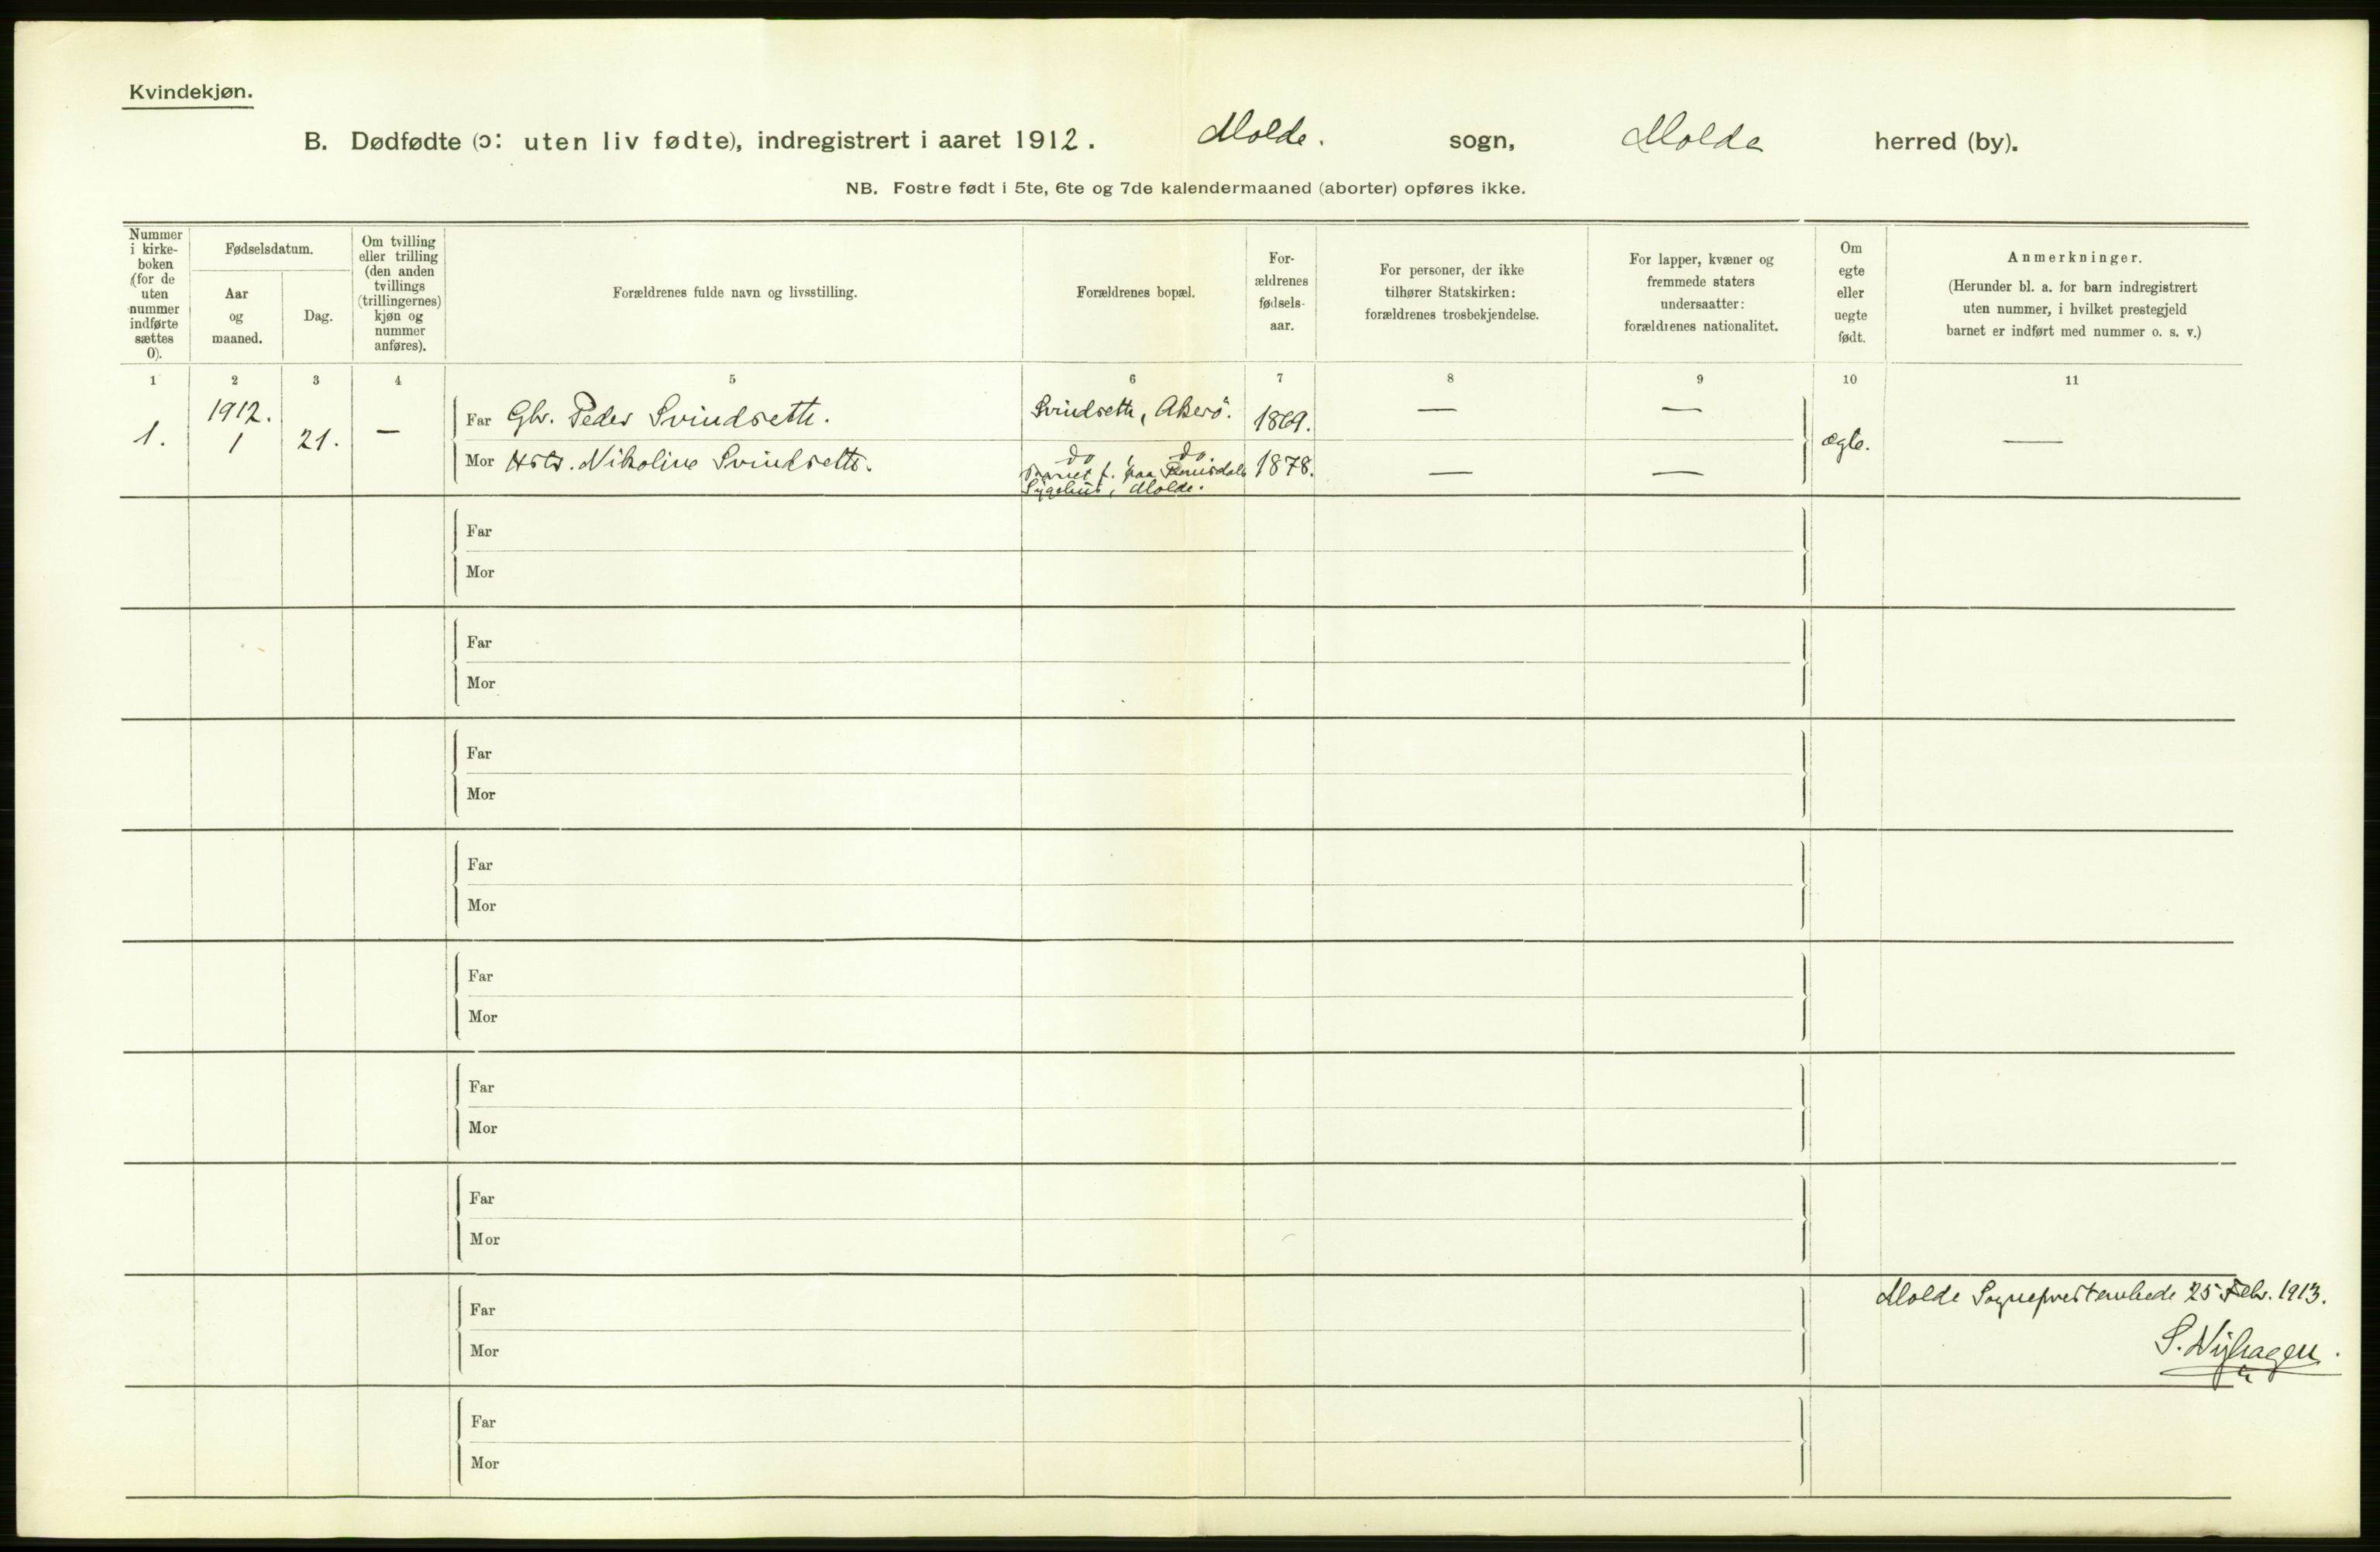 Kvindekjøn.
B. Dødfødte (ɔ: uten liv fødte), indregistrert i aaret 1912. Molde. sogn, Molde herred (by).
NB. Fostre født i 5te, 6te og 7de kalendermaaned (aborter) opføres ikke.
Nummer i kirke- boken (for de uten nummer indførte sættes 0).
Fødselsdatum.
Aar og maaned.
Dag.
Om tvilling eller trilling (den anden tvillings (trillingernes) kjøn og nummer anføres).
Forældrenes fulde navn og livsstilling.
Forældrenes bopæl.
For- ældrenes fødsels- aar.
For personer, der ikke tilhører Statskirken: forældrenes trosbekjendelse.
For lapper, kvæner og fremmede staters undersaatter: forældrenes nationalitet.
Om egte eller uegte født.
Anmerkninger.
(Herunder bl. a. for barn indregistrert uten nummer, i hvilket prestegjeld barnet er indført med nummer o. s. v.)
1 2 3 4 5 6 7 8 9 10 11
1. 1912. 1 21. —
Far Gbr. Peder Svindseth. Svindseth, Akerö. 1869. — —
Mor Hstr. Nikoline Svindseth. do, do. 1878. — — ægte. —
Barnet f. paa Romsdals
Sygehus, Molde.
Far
Mor
Far
Mor
Far
Mor
Far
Mor
Far
Mor
Far
Mor
Far
Mor
Far
Mor
Far
Mor
Molde Sogneprestembede 25 Febr. 1913.
S. Nyhagen.